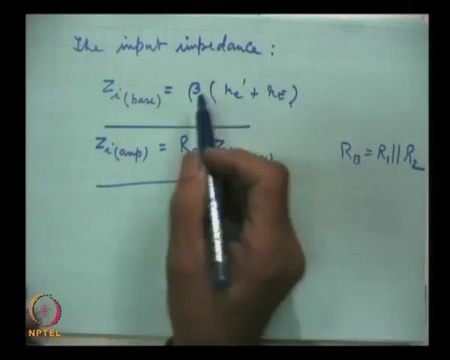 The input impedance :
Zi(base) = β ( re' + rE )
Zi(amp) = R
RB = R1 || R2
NPTEL